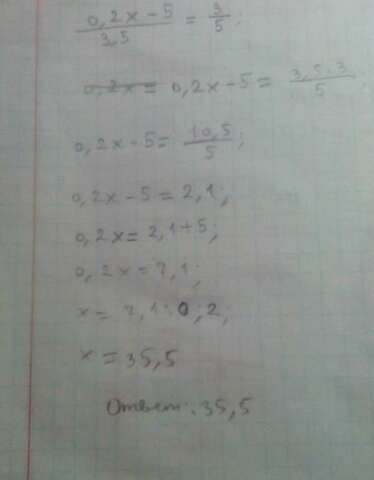 (0,2x-5)/3,5 = 3/5;
0,2x = 0,2x-5 = (3,5·3)/5
0,2x-5 = 10,5/5;
0,2x-5 = 2,1;
0,2x = 2,1+5;
0,2x = 7,1;
x = 7,1:0,2;
x = 35,5
Ответ: 35,5